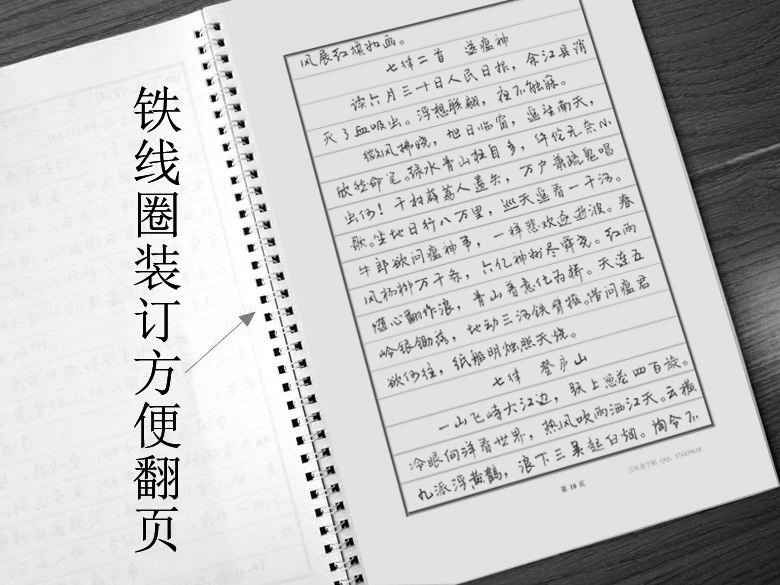 铁线圈装订方便翻页
风展红旗如画。
七律二首 送瘟神
读六月三十日人民日报，余江县消
灭了血吸虫。浮想联翩，夜不能寐。
微风拂晓，旭日临窗，遥望南天，
欣然命笔。绿水青山枉自多，华佗无奈小
虫何！千村薜荔人遗矢，万户萧疏鬼唱
歌。坐地日行八万里，巡天遥看一千河。
牛郎欲问瘟神事，一样悲欢逐逝波。春
风杨柳万千条，六亿神州尽舜尧。红雨
随心翻作浪，青山着意化为桥。天连五
岭银锄落，地动三河铁臂摇。借问瘟君
欲何往，纸船明烛照天烧。
七律 登庐山
一山飞峙大江边，跃上葱茏四百旋。
冷眼向洋看世界，热风吹雨洒江天。云横
九派浮黄鹤，浪下三吴起白烟。陶令不
第 19 页